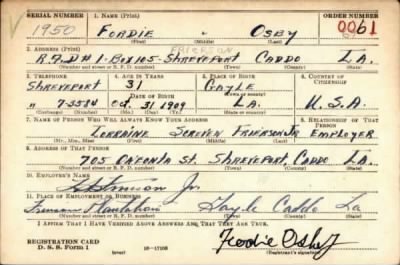 SERIAL NUMBER 1. NAME (Print) ORDER NUMBER
1950 FORDIE OSBY 0061
(First) (Middle) (Last)
2. ADDRESS (Print) FRIERSON
R.F.D# 1-BOX 105-SHREVEPORT CADDO LA.
(Number and street or R. F. D. number) (Town) (County) (State)
3. TELEPHONE 4. AGE IN YEARS 5. PLACE OF BIRTH 6. COUNTRY OF CITIZENSHIP
SHREVEPORT 31 GAYLE
DATE OF BIRTH (Town or county)
" 7-3558 OCT. 31 1909 LA. U.S.A.
(Exchange) (Number) (Mo.) (Day) (Yr.) (State or country)
7. NAME OF PERSON WHO WILL ALWAYS KNOW YOUR ADDRESS 8. RELATIONSHIP OF THAT PERSON
LORRAINE SCREVEN FRIERSON JR EMPLOYER
(Mr., Mrs., Miss) (First) (Middle) (Last)
9. ADDRESS OF THAT PERSON
705 ONEONTA ST. SHREVEPORT, CADDO LA.
(Number and street or R. F. D. number) (Town) (County) (State)
10. EMPLOYER'S NAME
Frierson Jr.
11. PLACE OF EMPLOYMENT OR BUSINESS
Frierson Plantation Gayle Caddo La
(Number and street or R. F. D. number) (Town) (County) (State)
I AFFIRM THAT I HAVE VERIFIED ABOVE ANSWERS AND THAT THEY ARE TRUE.
REGISTRATION CARD
D. S. S. Form 1 (over) 16-17105 Fordie Osby
(Registrant's signature)